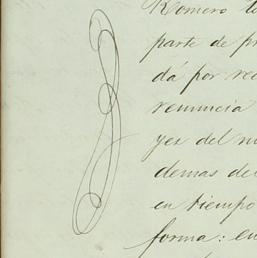 Romero
parte de
dá por
renuncia
yes del
demas
en tiempo
forma: en